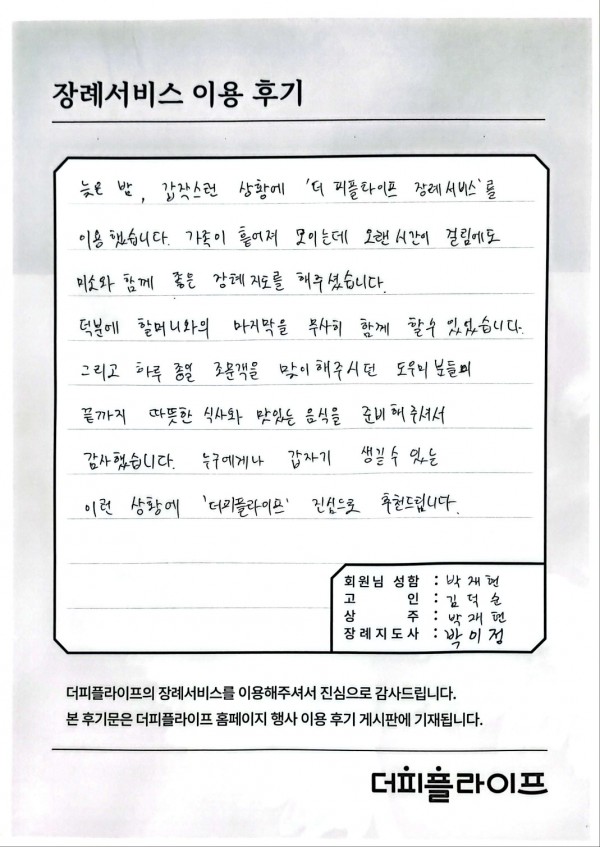 장례서비스 이용 후기
늦은 밤, 갑작스런 상황에 '더 피플라이프 장례서비스'를
이용했습니다. 가족이 흩어져 모이는데 오랜시간이 걸림에도
미소와 함께 좋은 장례지도를 해주셨습니다.
덕분에 할머니와의 마지막을 무사히 함께 할수 있었습니다.
그리고 하루 종일 조문객을 맞이해주시던 도우미분들의
끝까지 따뜻한 식사와 맛있는 음식을 준비해주셔서
감사했습니다. 누구에게나 갑자기 생길수 있는
이런 상황에 '더피플라이프' 진심으로 추천드립니다.
회원님 성함 : 박재현
고 인 : 김덕순
상 주 : 박재현
장례지도사 : 박미정
더피플라이프의 장례서비스를 이용해주셔서 진심으로 감사드립니다.
본 후기문은 더피플라이프 홈페이지 행사 이용 후기 게시판에 기재됩니다.
더피플라이프